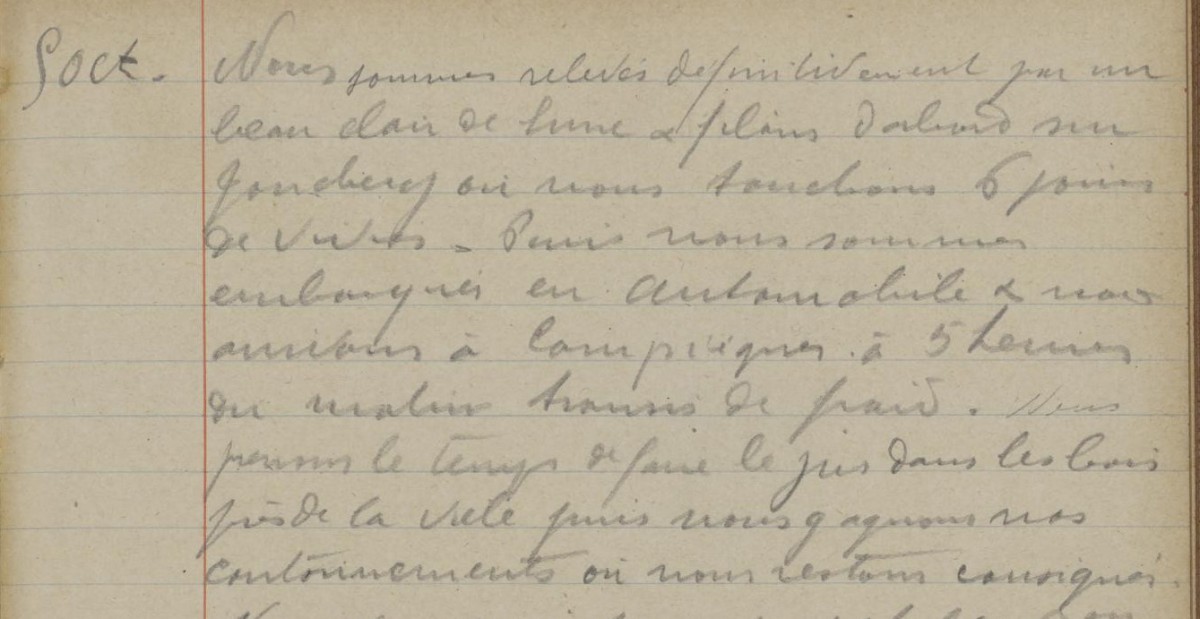 oct. Nous sommes relevés definitivement par un
beau clair de lune & filons d'abord sur
où nous touchons 6 jours
de vivres - Puis nous sommes
embarqués en automobile & nous
arrivons à Compiègnes à 5 heures
du matin transis de froid. Nous
prenons le temps de faire le jus dans les bois
près de la ville puis nous gagnons nos
cantonnements où nous restons consignés.